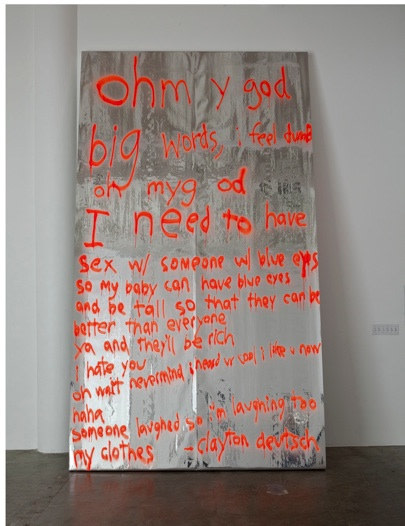 ohm y god
big words, i feel dumb
oh myg od
I need to have
sex w/ someone w/ blue eyes
so my baby can have blue eyes
and be tall so that they can be
better than everyone
ya and they'll be rich
i hate you
oh wait nevermind i heard ur cool i like u now
haha
someone laughed so i'm laughing too
my clothes - clayton deutsch